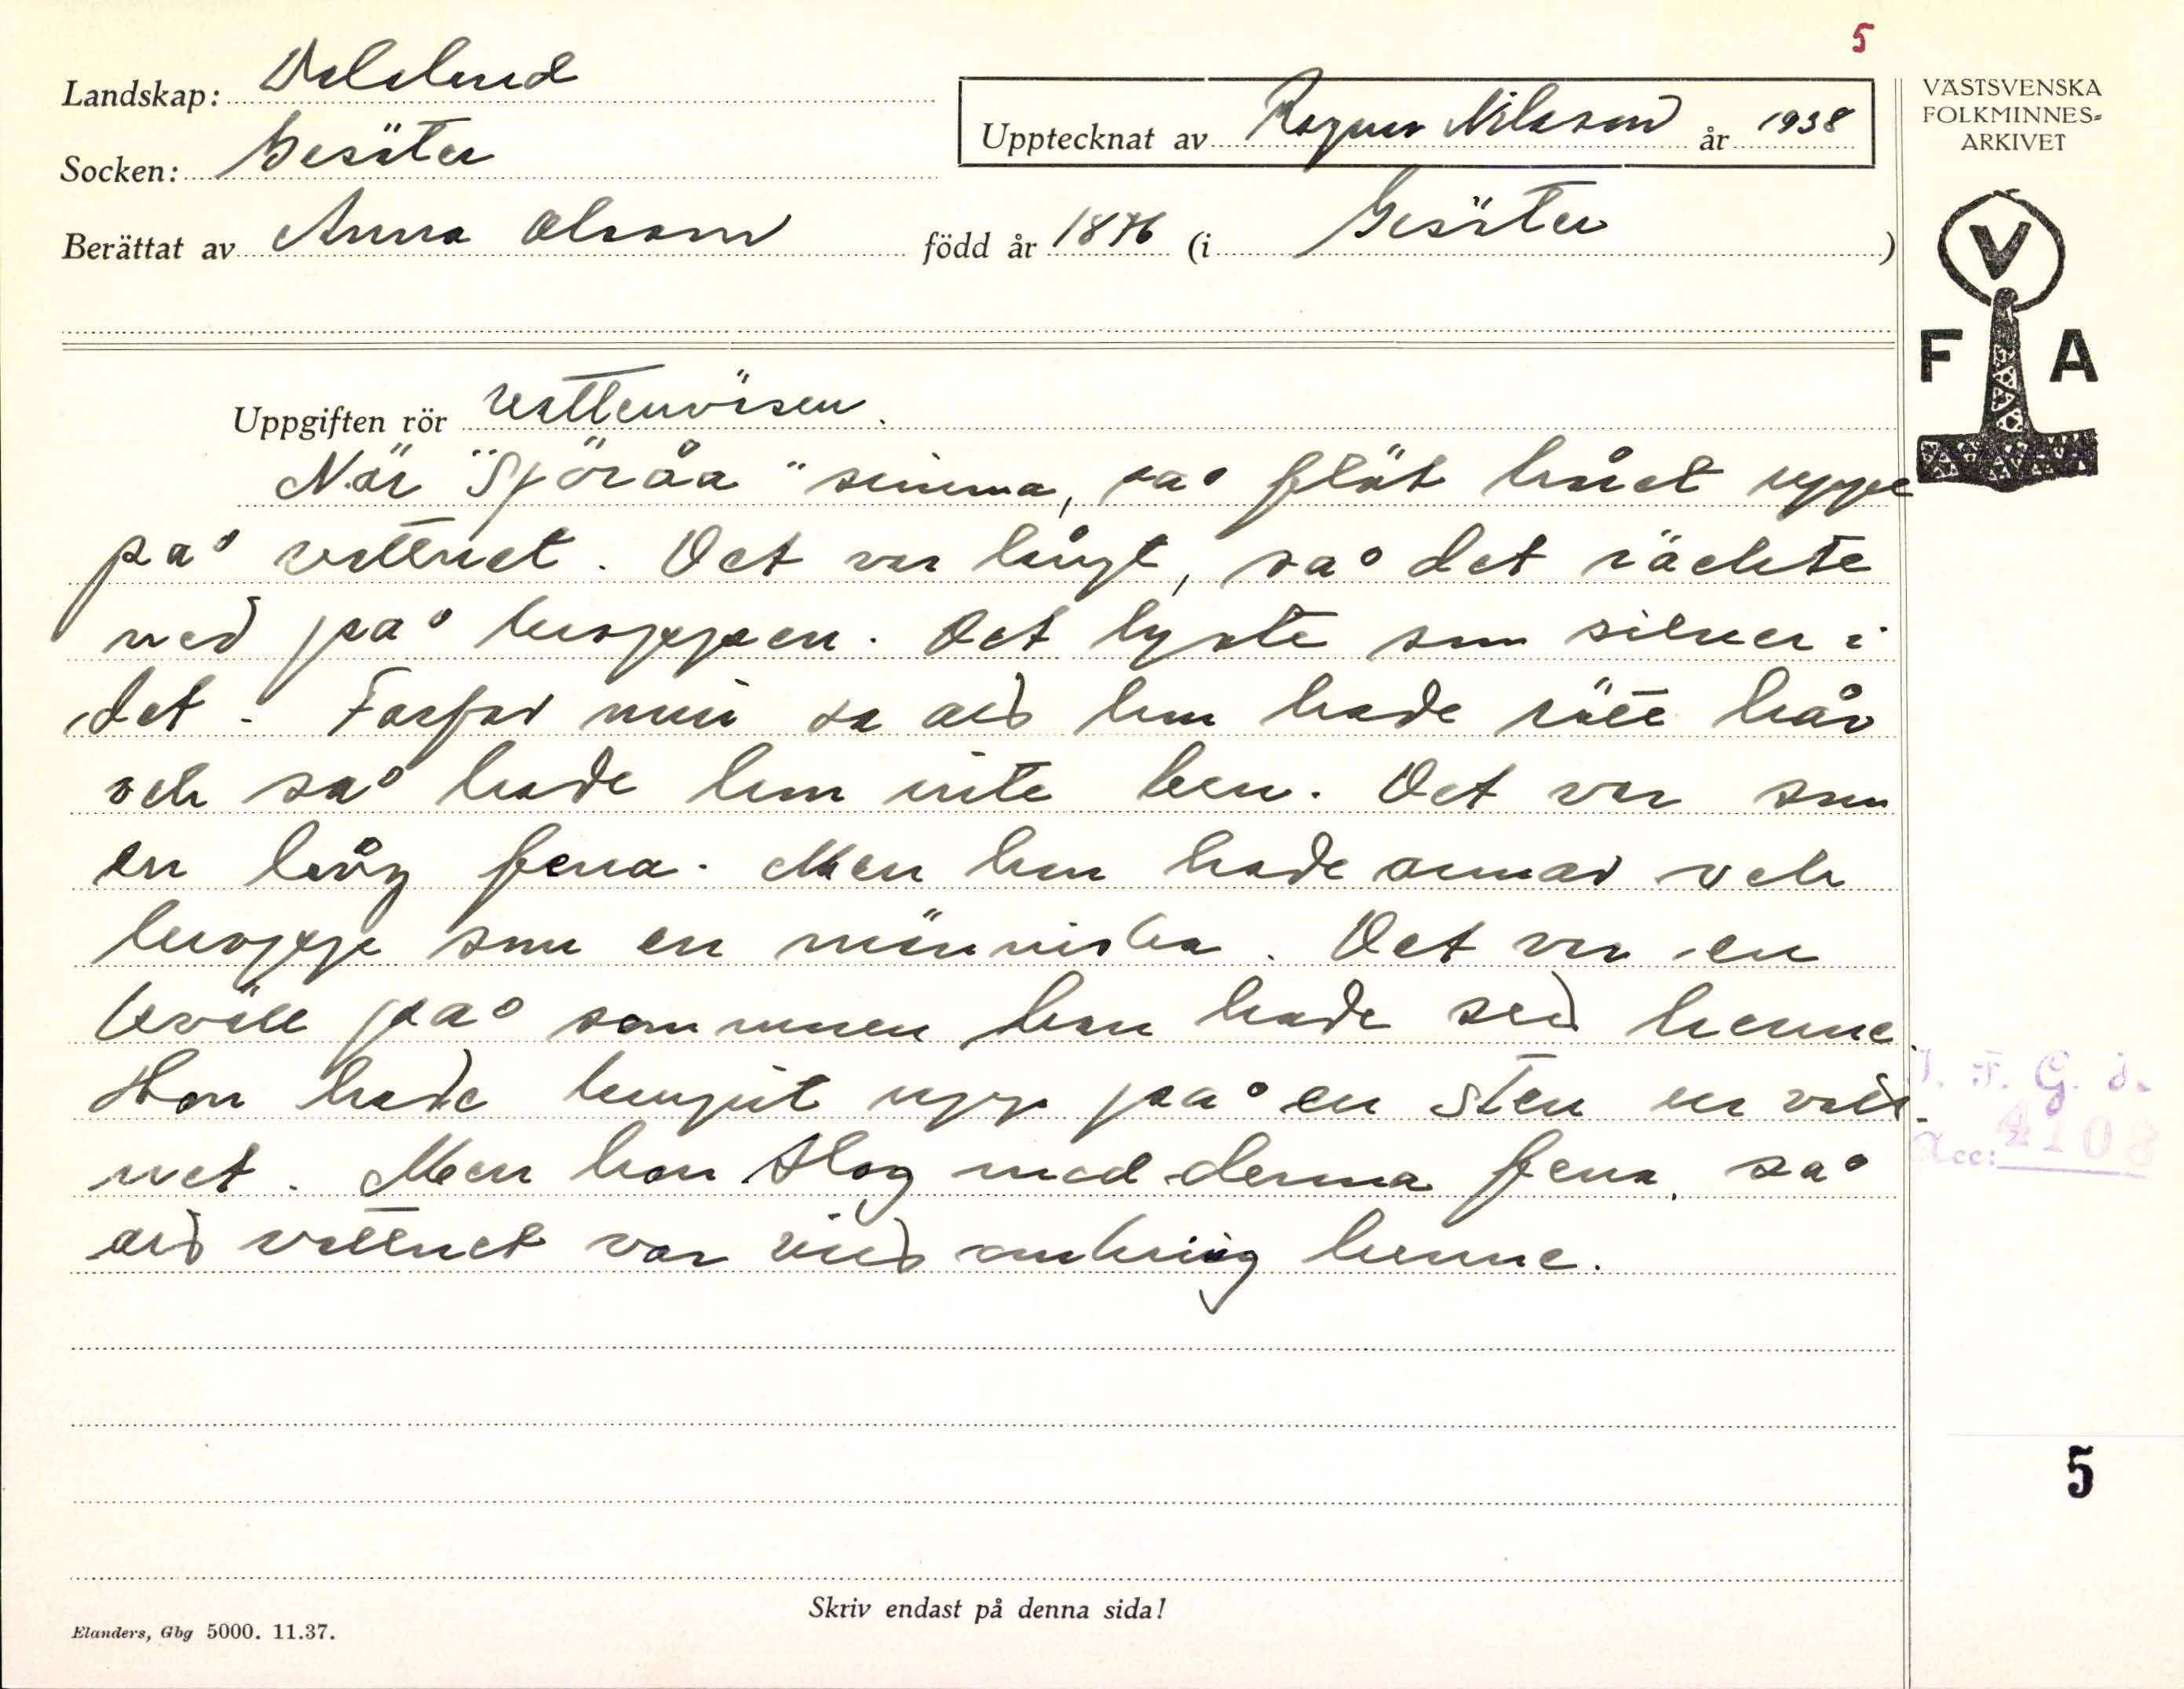 5
Landskap: Dalsland
Upptecknat av Ragnar Nilsson år 1938
Socken: Gesäter
Berättat av Anna Olsson född år 1876 (i Gesäter)
VÄSTSVENSKA
FOLKMINNES=
ARKIVET
V
F A
Uppgiften rör vattenväsen.
När "Sjöråa" simma, så flöt håret uppe
på vattnet. Det var långt, så det räckte
ned på kroppen. Det lyste som silver i
det. Farfar min sa att hon hade rött hår
och så hade hon inte ben. Det var som
en lång fena. Men hon hade armar och
kropp som en människa. Det var en
kväll på sommaren han hade sett henne.
Hon hade krupit upp på en sten ur vatt-
net. Men hon slog med denna fena, så
att vattnet var vitt omkring henne.
I. F. G. å.
Acc: 4108
5
Skriv endast på denna sida!
Elanders, Gbg 5000. 11.37.